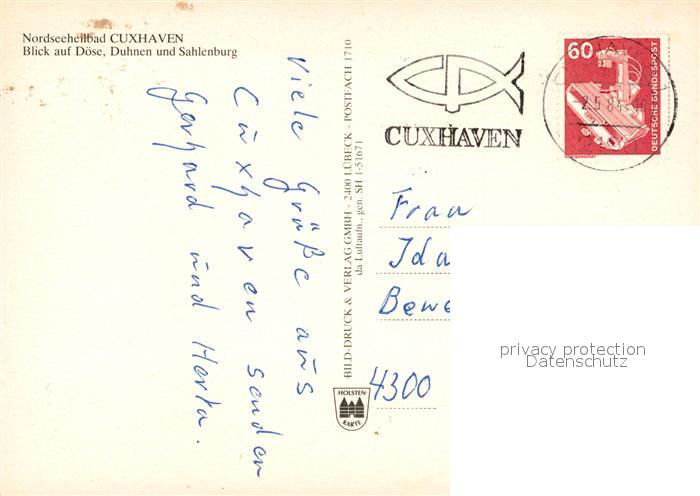 Nordseeheilbad CUXHAVEN
Blick auf Döse, Duhnen und Sahlenburg
Viele Grüße aus
Cuxhaven senden
Gerhard und Herta.
BILD-DRUCK & VERLAG GMBH · 2400 LÜBECK · POSTFACH 1710
da Luftaufn., gen. SH 1-51671
HOLSTEN-
KARTE
CUXHAVEN
60
DEUTSCHE BUNDESPOST
Frau
Ida
4300
privacy protection
Datenschutz